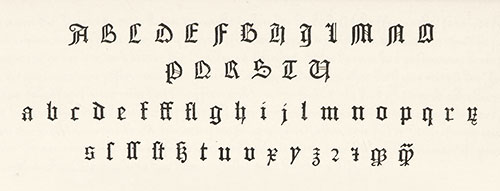 A B C D E F G H J L M N O
P Q R S T U
a b c d e f ff fl g h i j l m n o p q r
s ſ ſſ ſt ß t u v x y z ꝛ